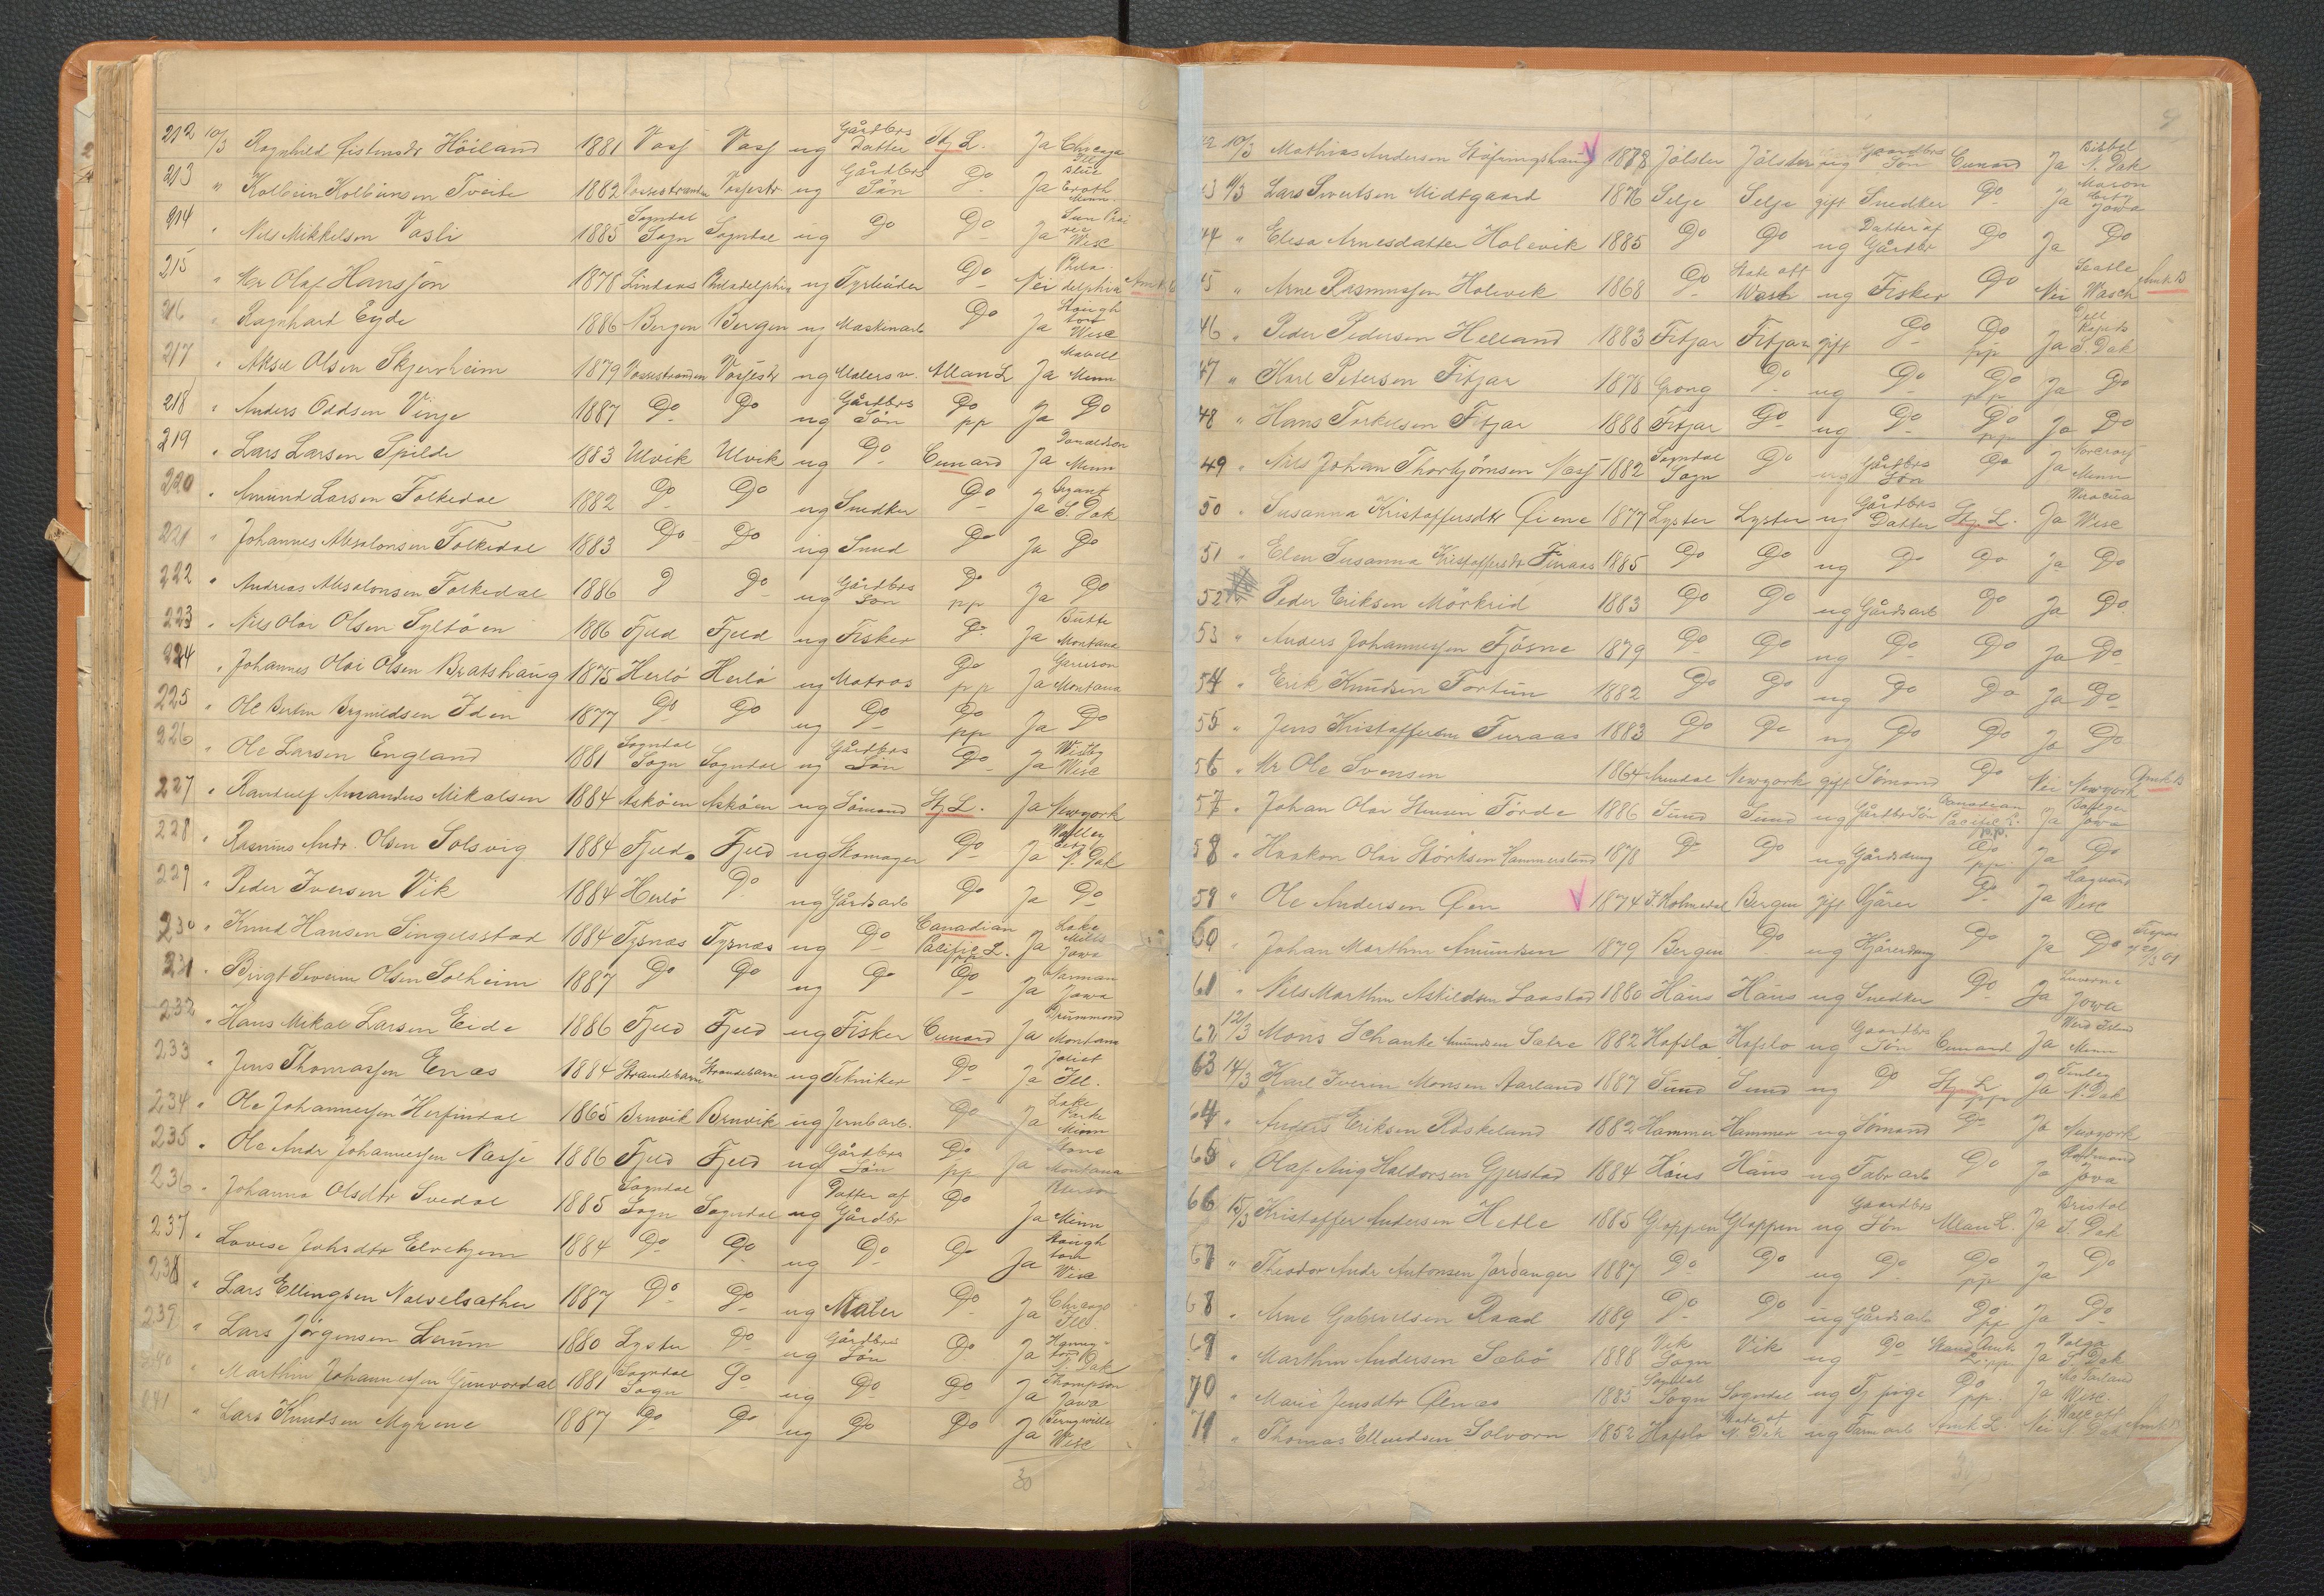 212 10/3 Ragnhild Eistensdr Höiland 1881 Voss Voss ug Gårdbrs Datter Stj L. Ja Chicago Ill
213 " Kolbein Kolbeinsen Tveite 1882 Vossestranden Vossestr ug Gårdbrs Sön Do Ja Blue Earth Minn
214 " Nils Mikkelsen Vasli 1885 Sogndal Sogn Sogndal ug Do Do Ja Sun Prairie Wisc
215 " Mr Olaf Hanssen 1878 Lindaas Philadelphia ug Do Nei Philadelphia
216 " Ragnhard Eyde 1886 Bergen Bergen ug Maskinarb Do Ja Stoughton Wisc
217 " Aksel Olsen Skjerveheim 1879 Vossestranden Vossestr ug Malersv. Allan L Ja Minn
218 " Anders Oddsen Vinje 1887 Do Do ug Gårdbrs Sön Do pp Ja Do
219 " Lars Larsen Spilde 1883 Ulvik Ulvik ug Do Cunard Ja Donaldson Minn
220 " Amund Larsen Folkedal 1882 Do Do ug Snedker Do Ja Bryant S. Dak
221 " Johannes Absalonsen Folkedal 1883 Do Do ug Smed Do Ja Do
222 " Andreas Absalonsen Folkedal 1886 Do Do ug Gårdbrs Sön Do pp Ja Do
223 " Nils Olai Olsen Syltöen 1886 Fjeld Fjeld ug Fisker Do Ja Butte Montana
224 " Johannes Olai Olsen Bratshaug 1875 Herlö Herlö ug Matros Do pp Ja Garrison Montana
225 " Ole Bertin Brynildsen Iden 1877 Do Do ug Do Do pp Ja Do
226 " Ole Larsen England 1881 Sogndal Sogn Sogndal ug Gårdbrs Sön Do Ja Westby Wisc
227 " Randulf Amandus Mikalsen 1884 Asköen Asköen ug Sömand Stj L. Ja Newyork
228 " Rasmus Andr. Olsen Solsvig 1884 Fjeld Fjeld ug Skomager Do Ja Valley City N. Dak
229 " Peder Iversen Vik 1884 Herlö Do ug Gårdsarb Do Ja Do
230 " Knud Hansen Singelsstad 1884 Tysnæs Tysnæs ug Do Canadian Pacific L. pp Ja Lake Mills Jowa
231 " Birgt Severin Olsen Solheim 1887 Do Do ug Do Do Ja Jowa
232 " Hans Mikal Larsen Eide 1886 Fjeld Fjeld ug Fisker Cunard Ja Drummond Montana
233 " Jens Thomassen Enæs 1884 Strandebarm Strandebarm ug Tekniker Do Ja Joliet Ill.
234 " Ole Johannessen Herfindal 1865 Bruvik Bruvik ug Jernbarb. Do Ja Lake Park Minn
235 " Ole Andr Johannessen Næsse 1886 Fjeld Fjeld ug Gårdbrs Sön Do pp Ja Stone Montana
236 " Johanna Olsdtr Svedal 1885 Sogndal Sogn Sogndal ug Datter af Gårdbr Do Ja Minn
237 " Lovise Johsdtr Elvekjem 1884 Do Do ug Do Do Ja Stoughton Wisc
238 " Lars Ellingsen Navelsather 1887 Do Do ug Maler Do Ja Chicago Ill.
239 " Lars Jörgensen Lerum 1880 Lyster Do ug Gårdbrs Sön Do Ja N. Dak
240 " Marthin Johannessen Gunvordal 1881 Sogndal Sogn Do ug Do Do Ja Thompson Jowa
241 " Lars Knudsen Myrene 1887 Do Do ug Do Do Ja Ferryville Wisc
30
9
42 10/3 Mathias Andersen Støfringshaug 1878 Jölster Jölster ug Gaardbrs Sön Cunard Ja Bisbel N. Dak
43 11/3 Lars Sivertsen Midtgaard 1876 Selje Selje gift Snedker Do Ja Mason City Jowa
44 " Elisa Arnesdatter Holevik 1885 Do Do ug Datter af Gårdbr Do Ja Do
45 " Arne Rasmussen Holevik 1868 Do State off Wash ug Fisker Do Nei Seatle Wasch Amk B
46 " Peder Pedersen Helland 1883 Fitjar Fitjar gift Do Do pp Ja Dell Rapids S. Dak
47 " Karl Petersen Fitjar 1878 Grong Do ug Do Do pp Ja Do
48 " Hans Torkelsen Fitjar 1888 Fitjar Do ug Do Do pp Ja Do
49 " Nils Johan Thorbjörnsen Næss 1882 Sogndal Sogn Do ug Gårdbrs Sön Do Ja Norcross Minn
50 " Susanna Kristoffersdtr Øiene 1877 Lyster Lyster ug Gårdbrs Datter Stj L. Ja Wisc
51 " Elen Susanna Kristoffersdr Furaas 1885 Do Do ug Do Do Ja Do
52 Peder Eriksen Mörkrid 1883 Do Do ug Gårdsarb Do Ja Do
53 " Anders Johannessen Fjösne 1879 Do Do ug Do Do Ja Do
54 " Erik Knudsen Fortun 1882 Do Do ug Do Do Ja Do
55 " Jens Kristoffersen Furaas 1883 Do Do ug Do Do Ja Do
56 " Mr Ole Svensen 1864 Arendal Newyork gift Sömand Do Nei Newyork Amk B
57 " Johan Olai Hansen Förde 1886 Sund Sund ug Gårdbr Sön Canadian Pacific L. p.p. Ja Jowa
58 " Haakon Olai Störksen Hammersland 1878 Do Do ug Gårdsdreng Do pp Ja Do
59 " Ole Andersen Øen 1874 I. Holmedal Bergen gift Kjörer Do Ja Wisc
60 " Johan Marthin Amundsen 1879 Bergen Do ug Kjöredreng Do Ja Do
61 " Nils Marthin Askildsen Laastad 1880 Haus Haus ug Snedker Do Ja Luverne Jowa
62 12/3 Mons Schanke Amundsen Sætre 1882 Hafslo Hafslo ug Gaardbrs Sön Cunard Ja Minn
63 14/3 Karl Iverin Monsen Aarland 1887 Sund Sund ug Do Stj L pp Ja Finley N. Dak
64 " Anders Eriksen Röskeland 1882 Hammer Hammer ug Sömand Do Ja Newyork
65 " Olaf Aug Haldorsen Gjerstad 1884 Haus Haus ug Fabrarb Do Ja Jowa
66 15/3 Kristoffer Andersen Hetle 1885 Gloppen Gloppen ug Gaardbrs Sön Allan L. Ja Bristol S. Dak
67 " Theodor Andr Antonsen Jordanger 1887 Do Do ug Do Do pp Ja Do
68 " Arne Gabrielsen Raad 1889 Do Do ug Gårdsarb Do pp Ja Do
69 " Marthin Andersen Sæbö 1888 Vik Sogn Vik ug Do Skand Amk. L pp Ja Volga S. Dak
70 " Marie Jensdtr Ølnæs 1885 Sogndal Sogn Sogndal ug Tj pige Do pp. Ja Mc Farland Wisc.
71 " Thomas Ellendsen Solvorn 1852 Hafslo State of N. Dak ug Farm arb Amk L Nei N Dak Amk B